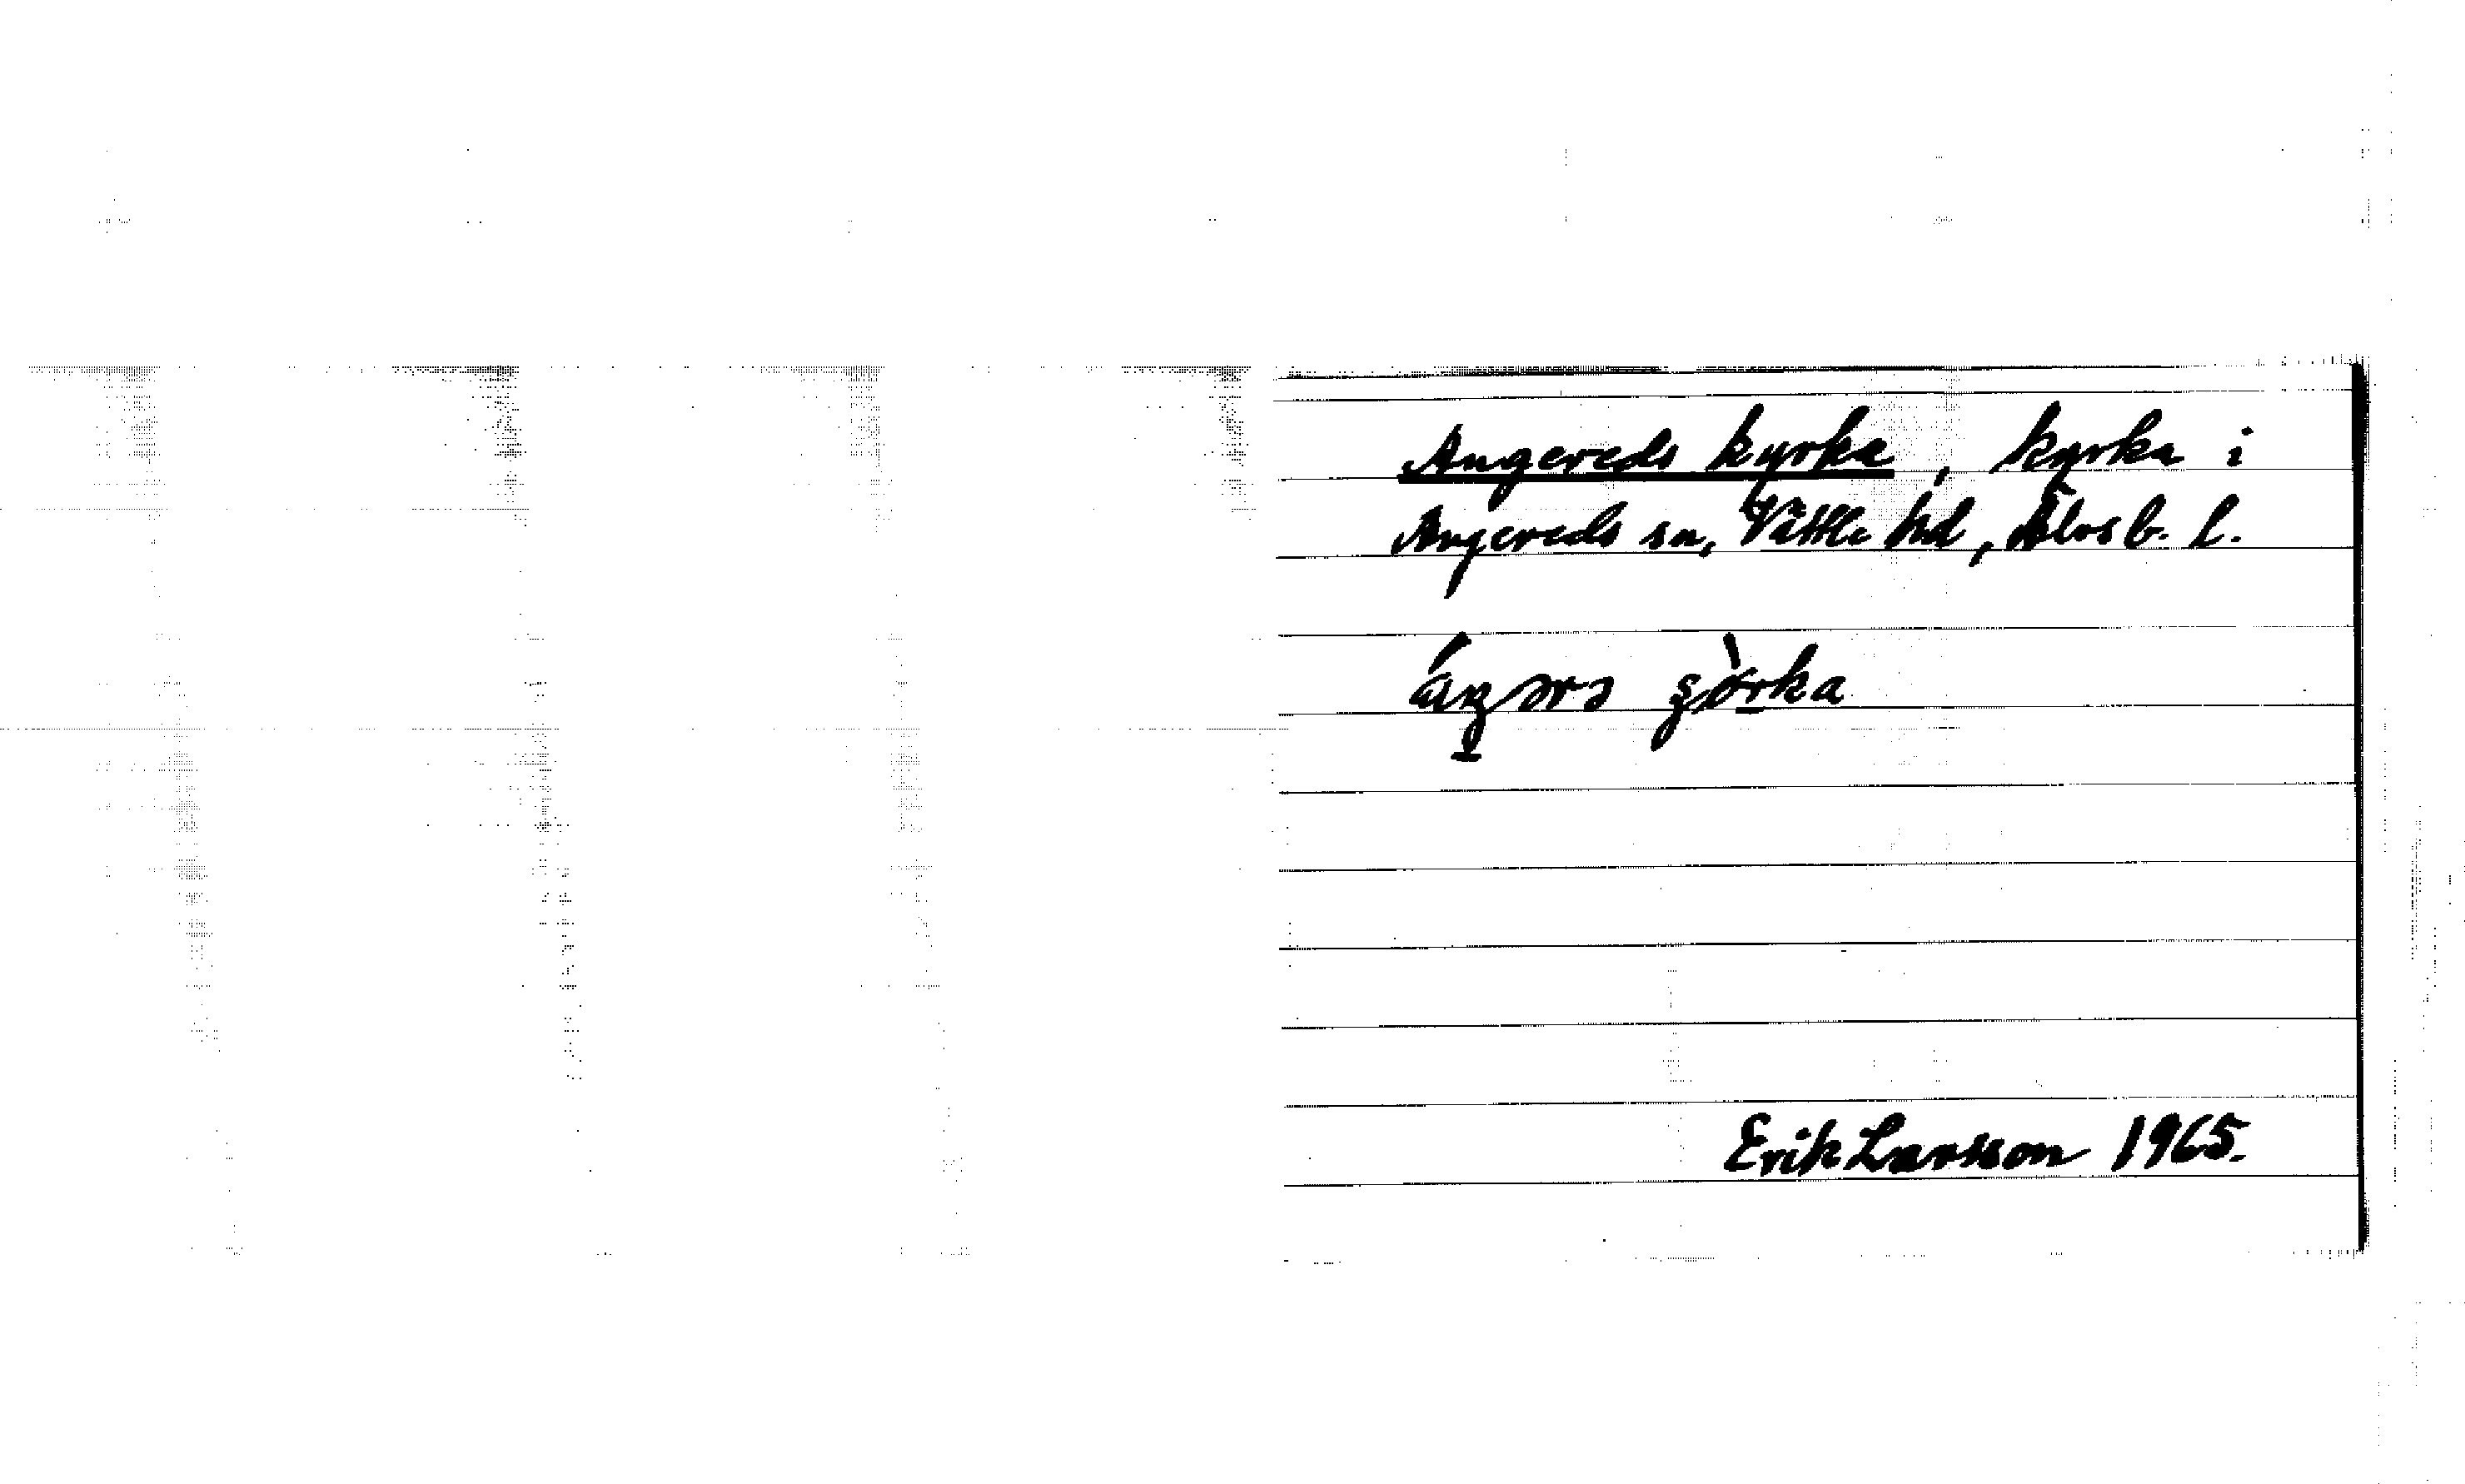 Angereds kyrka, kyrka i
Angereds sn, Vättle hd, Älvsb. l.
Erik Larsson 1965.